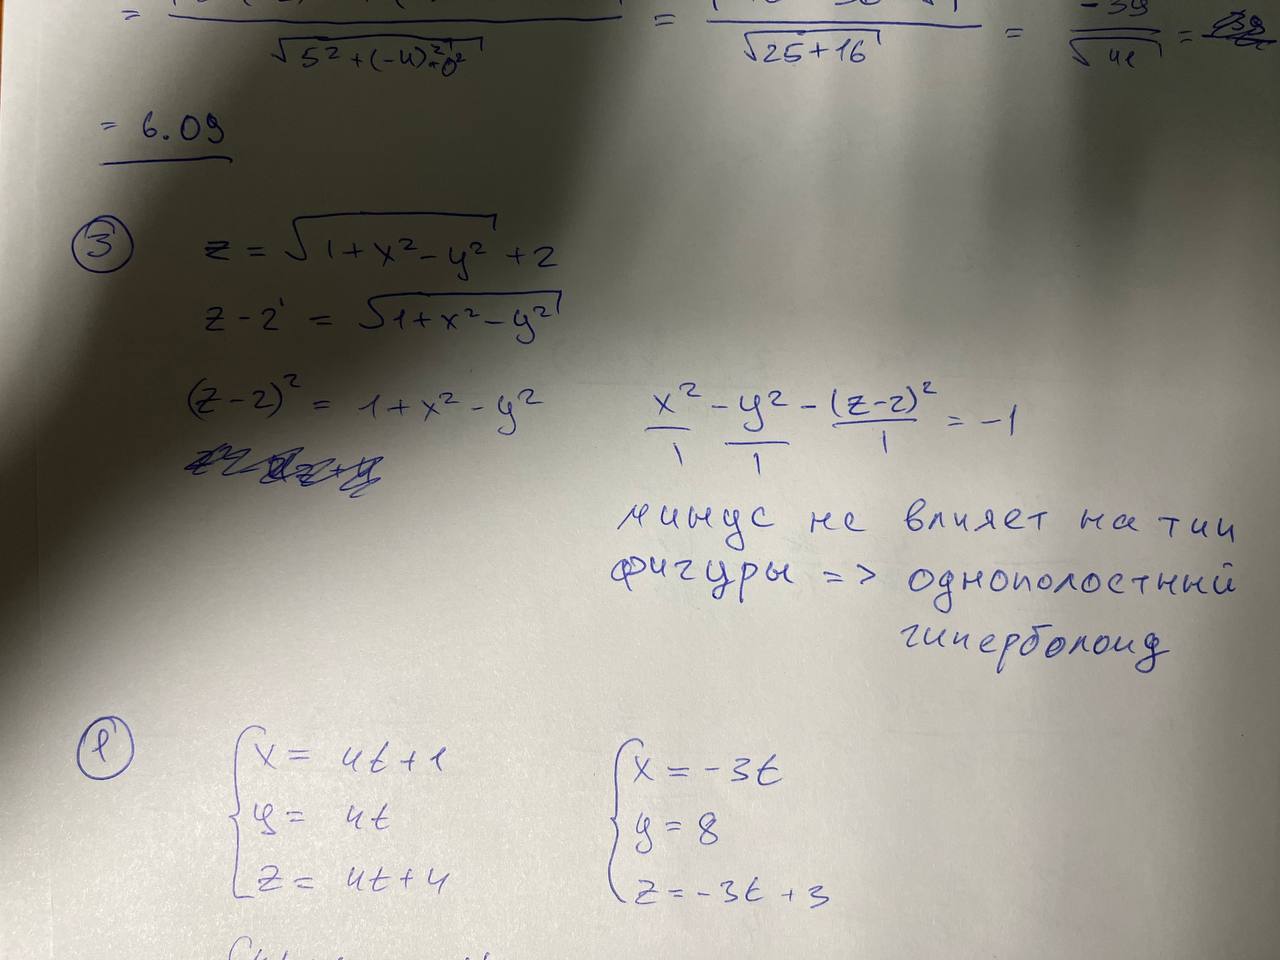 = / √5² + (-4)² + 0² = / √25+16 = -39 / √41 =
= 6.09
3 z = √1 + x² - y² + 2
z - 2 = √1 + x² - y²
(z - 2)² = 1 + x² - y²
x²/1 - y²/1 - (z-2)²/1 = -1
минус не влияет на тип
фигуры => однополостный
гиперболоид
1
x = 4t + 1
y = 4t
z = 4t + 4
x = -3t
y = 8
z = -3t + 3